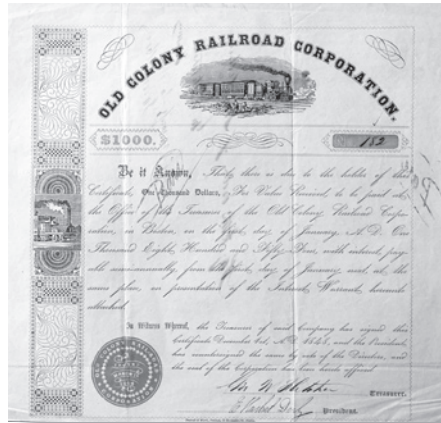 OLD COLONY RAILROAD CORPORATION.
$1000. 182
Be it Known, That there is due to the holder of this
Certificate, One Thousand Dollars, For Value Received, to be paid at
the Office of the Treasurer of the Old Colony Railroad Corpo-
ration, in Boston, on the first day of January A.D. One
Thousand Eight Hundred and Fifty Four, with interest pay-
able semi-annually, from the first day of January next, at the
same place, on presentation of the Interest Warrants hereunto
attached.
In Witness Whereof, the Treasurer of said Company has signed this
Certificate December 1st, A.D. 1848, and the President,
has countersigned the same by vote of the Directors, and
the seal of the Corporation has been hereto affixed.
Treasurer.
President.